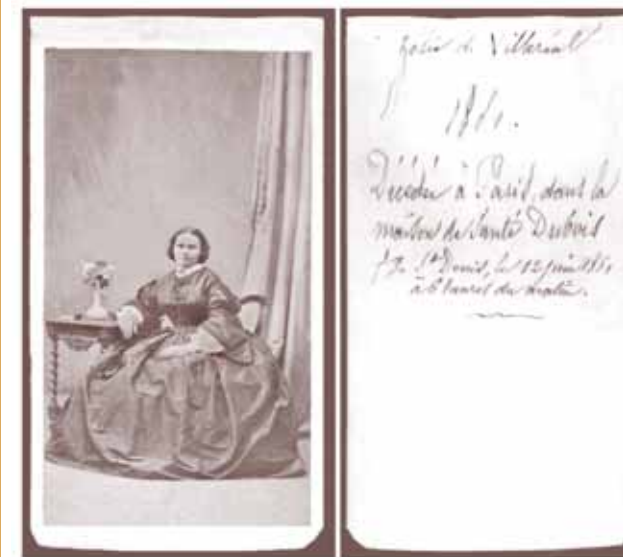 de Villarial
1861.
Décédée à Paris, dans la
maison de Santé Dubois
St Denis, le 12 juin 1861
à 6 heures du matin.